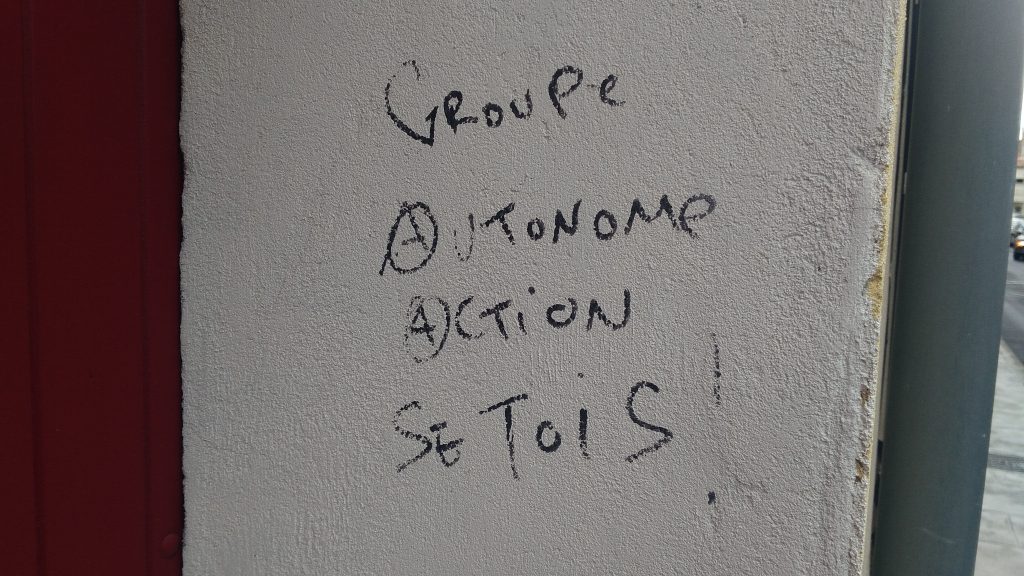 GROUPe
AUTONOMe
ACTiON
SETOiS !